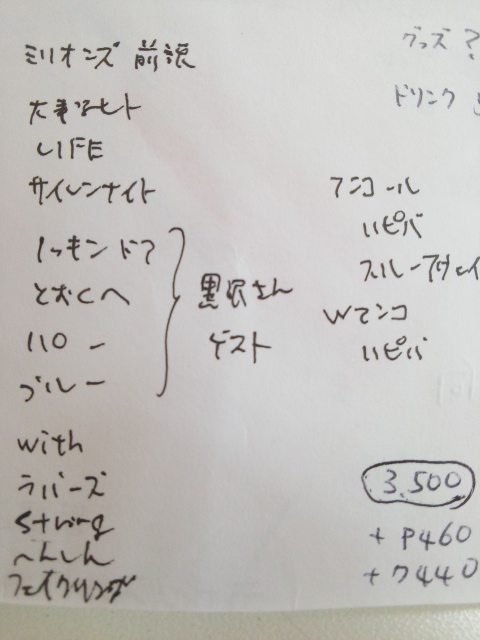 ミリオンズ 前説
大事なヒト
LIFE
サイレンナイト
ノッキンドア
とおくへ
ハロー
ブルー
黒沢さん
ゲスト
with
ラバーズ
String
へんしん
フェイクリング
グッズ?
ドリンク
アンコール
ハピバ
スルーアウェイ
Wアンコ
ハピバ
3,500
+ P460
+ ワ440